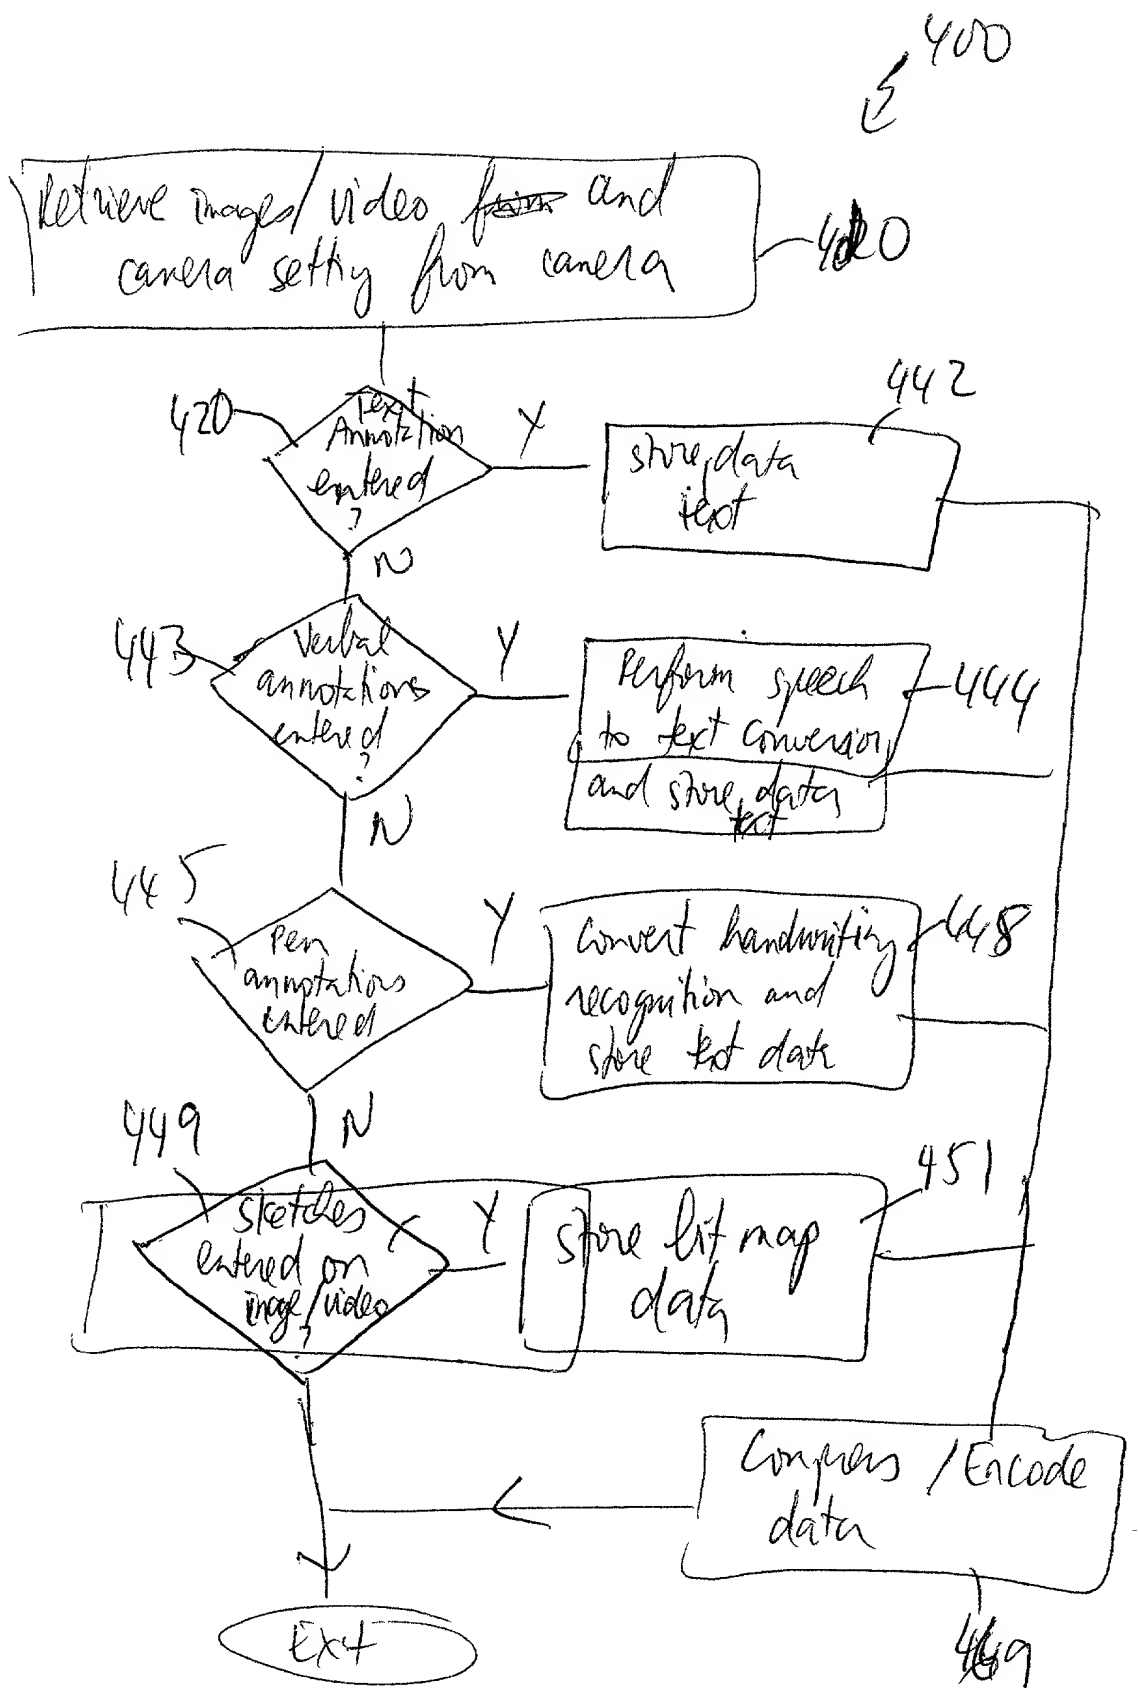 400
Retrieve images/video and
camera setting from camera
420
Text
Annotation
entered
?
Y
442
store data
text
N
443
Verbal
annotations
entered
?
Y
Perform speech
to text conversion
and store data
text
444
N
445
Pen
annotations
entered
Y
Convert handwriting
recognition and
store text data
448
N
449
Sketches
entered on
image/video
?
Y
store bit map
data
451
Compress/Encode
data
Exit